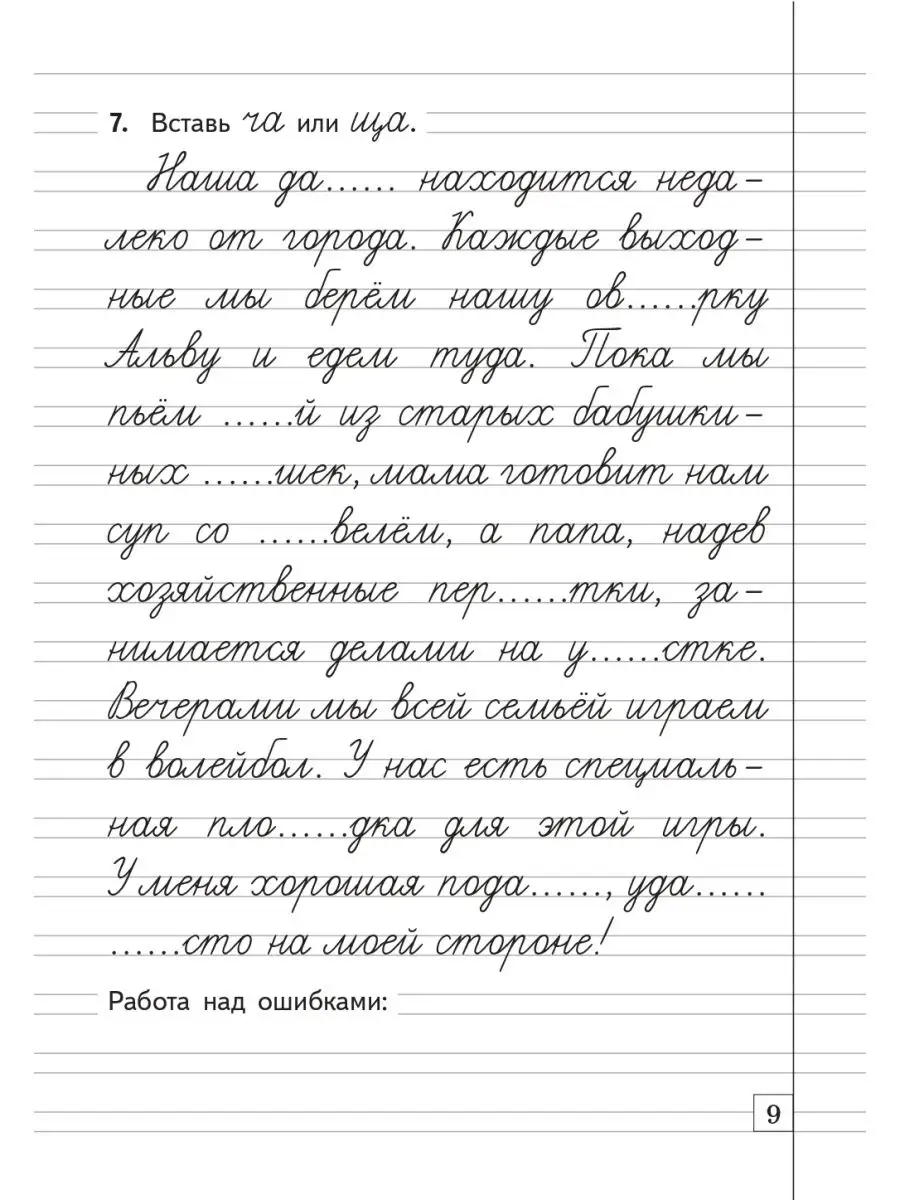 7. Вставь ча или ща.
Наша да...... находится неда-
леко от города. Каждые выход-
ные мы берём нашу ов......рку
Альву и едем туда. Пока мы
пьём ......й из старых бабушки-
ных ......шек, мама готовит нам
суп со ......велём, а папа, надев
хозяйственные пер......тки, за-
нимается делами на у......стке.
Вечерами мы всей семьёй играем
в волейбол. У нас есть специаль-
ная пло......дка для этой игры.
У меня хорошая пода......, уда......
......сто на моей стороне!
Работа над ошибками:
9